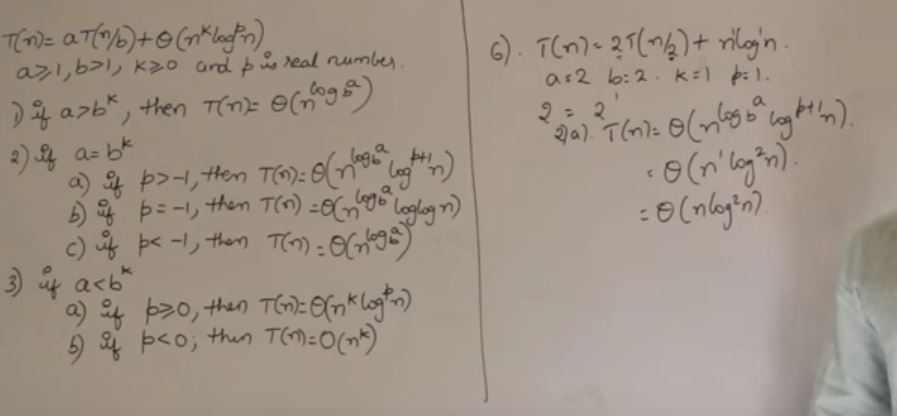 T(n) = aT(n/b) + Θ(n^k log^p n)
a ≥ 1, b > 1, k ≥ 0 and p is real number.
1) if a > b^k, then T(n) = Θ(n^{log_b a})
2) if a = b^k
a) if p > -1, then T(n) = Θ(n^{log_b a} log^{p+1} n)
b) if p = -1, then T(n) = Θ(n^{log_b a} log log n)
c) if p < -1, then T(n) = Θ(n^{log_b a})
3) if a < b^k
a) if p ≥ 0, then T(n) = Θ(n^k log^p n)
b) if p < 0, then T(n) = O(n^k)
6). T(n) = 2T(n/2) + n^1 log^1 n.
a = 2 b = 2. k = 1 p = 1.
2 = 2^1
2)a). T(n) = Θ(n^{log_b a} log^{p+1} n).
= Θ(n^1 log^2 n).
= Θ(n log^2 n).